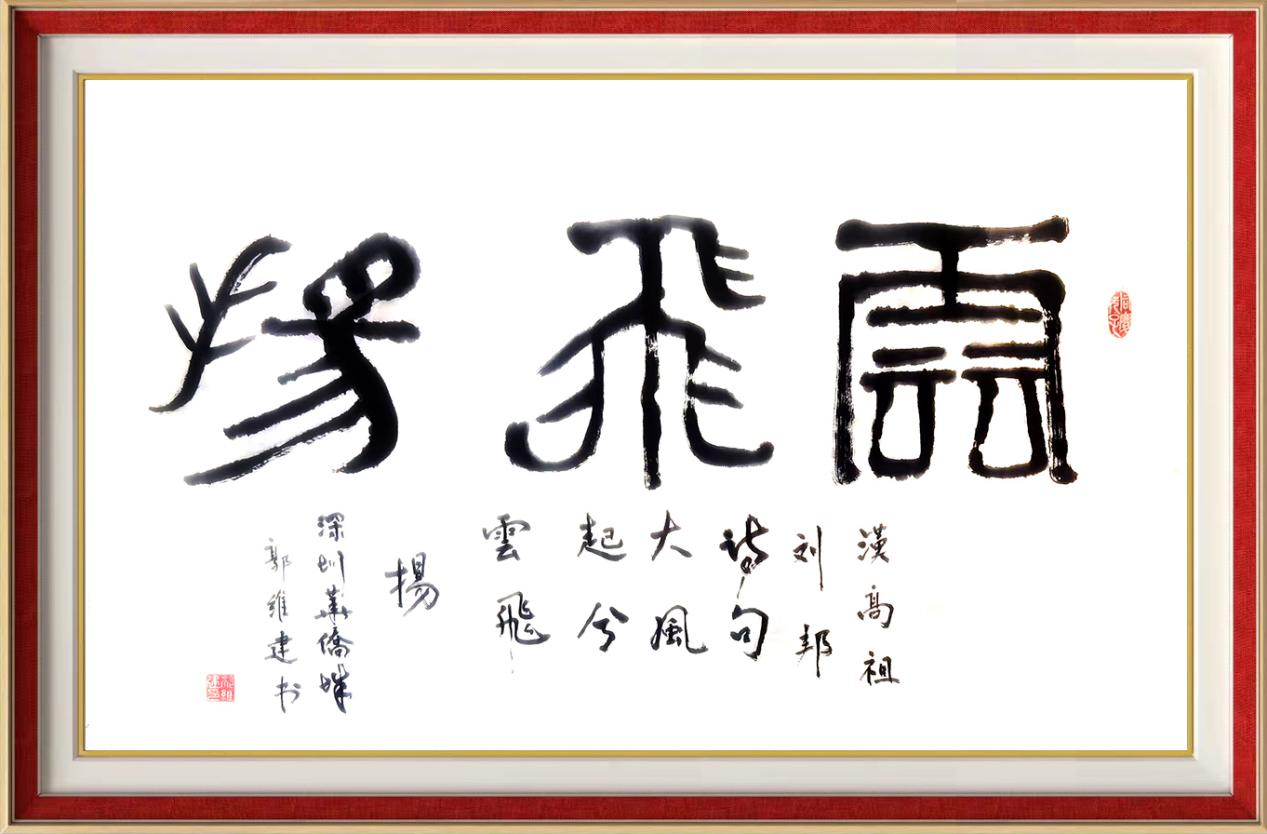 雲飛揚
漢高祖
刘邦
诗句
大風
起兮
雲飛
揚
深圳華僑城
郭維建书